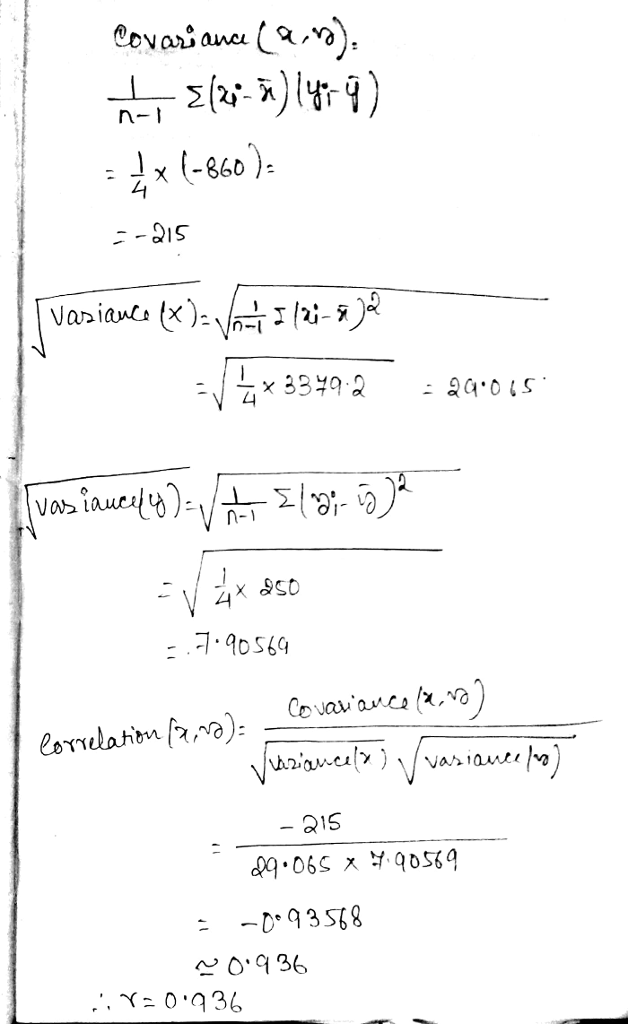 Covariance (x,y).
1/n-1 Σ(xi-x̄)(yi-ȳ)
= 1/4 x (-860)=
=-215
√Variance (x)=√1/n-1 Σ(xi-x̄)2
=√1/4 x 3379.2 = 29.065
√variance(y)=√1/n-1 Σ(yi-ȳ)2
=√1/4 x 250
=.7.90569
Correlation (x,y)= Covariance (x,y) / √variance(x) √variance(y)
= -215 / 29.065 x 7.90569
= -0.93568
≃ 0.936
∴ r=0.936